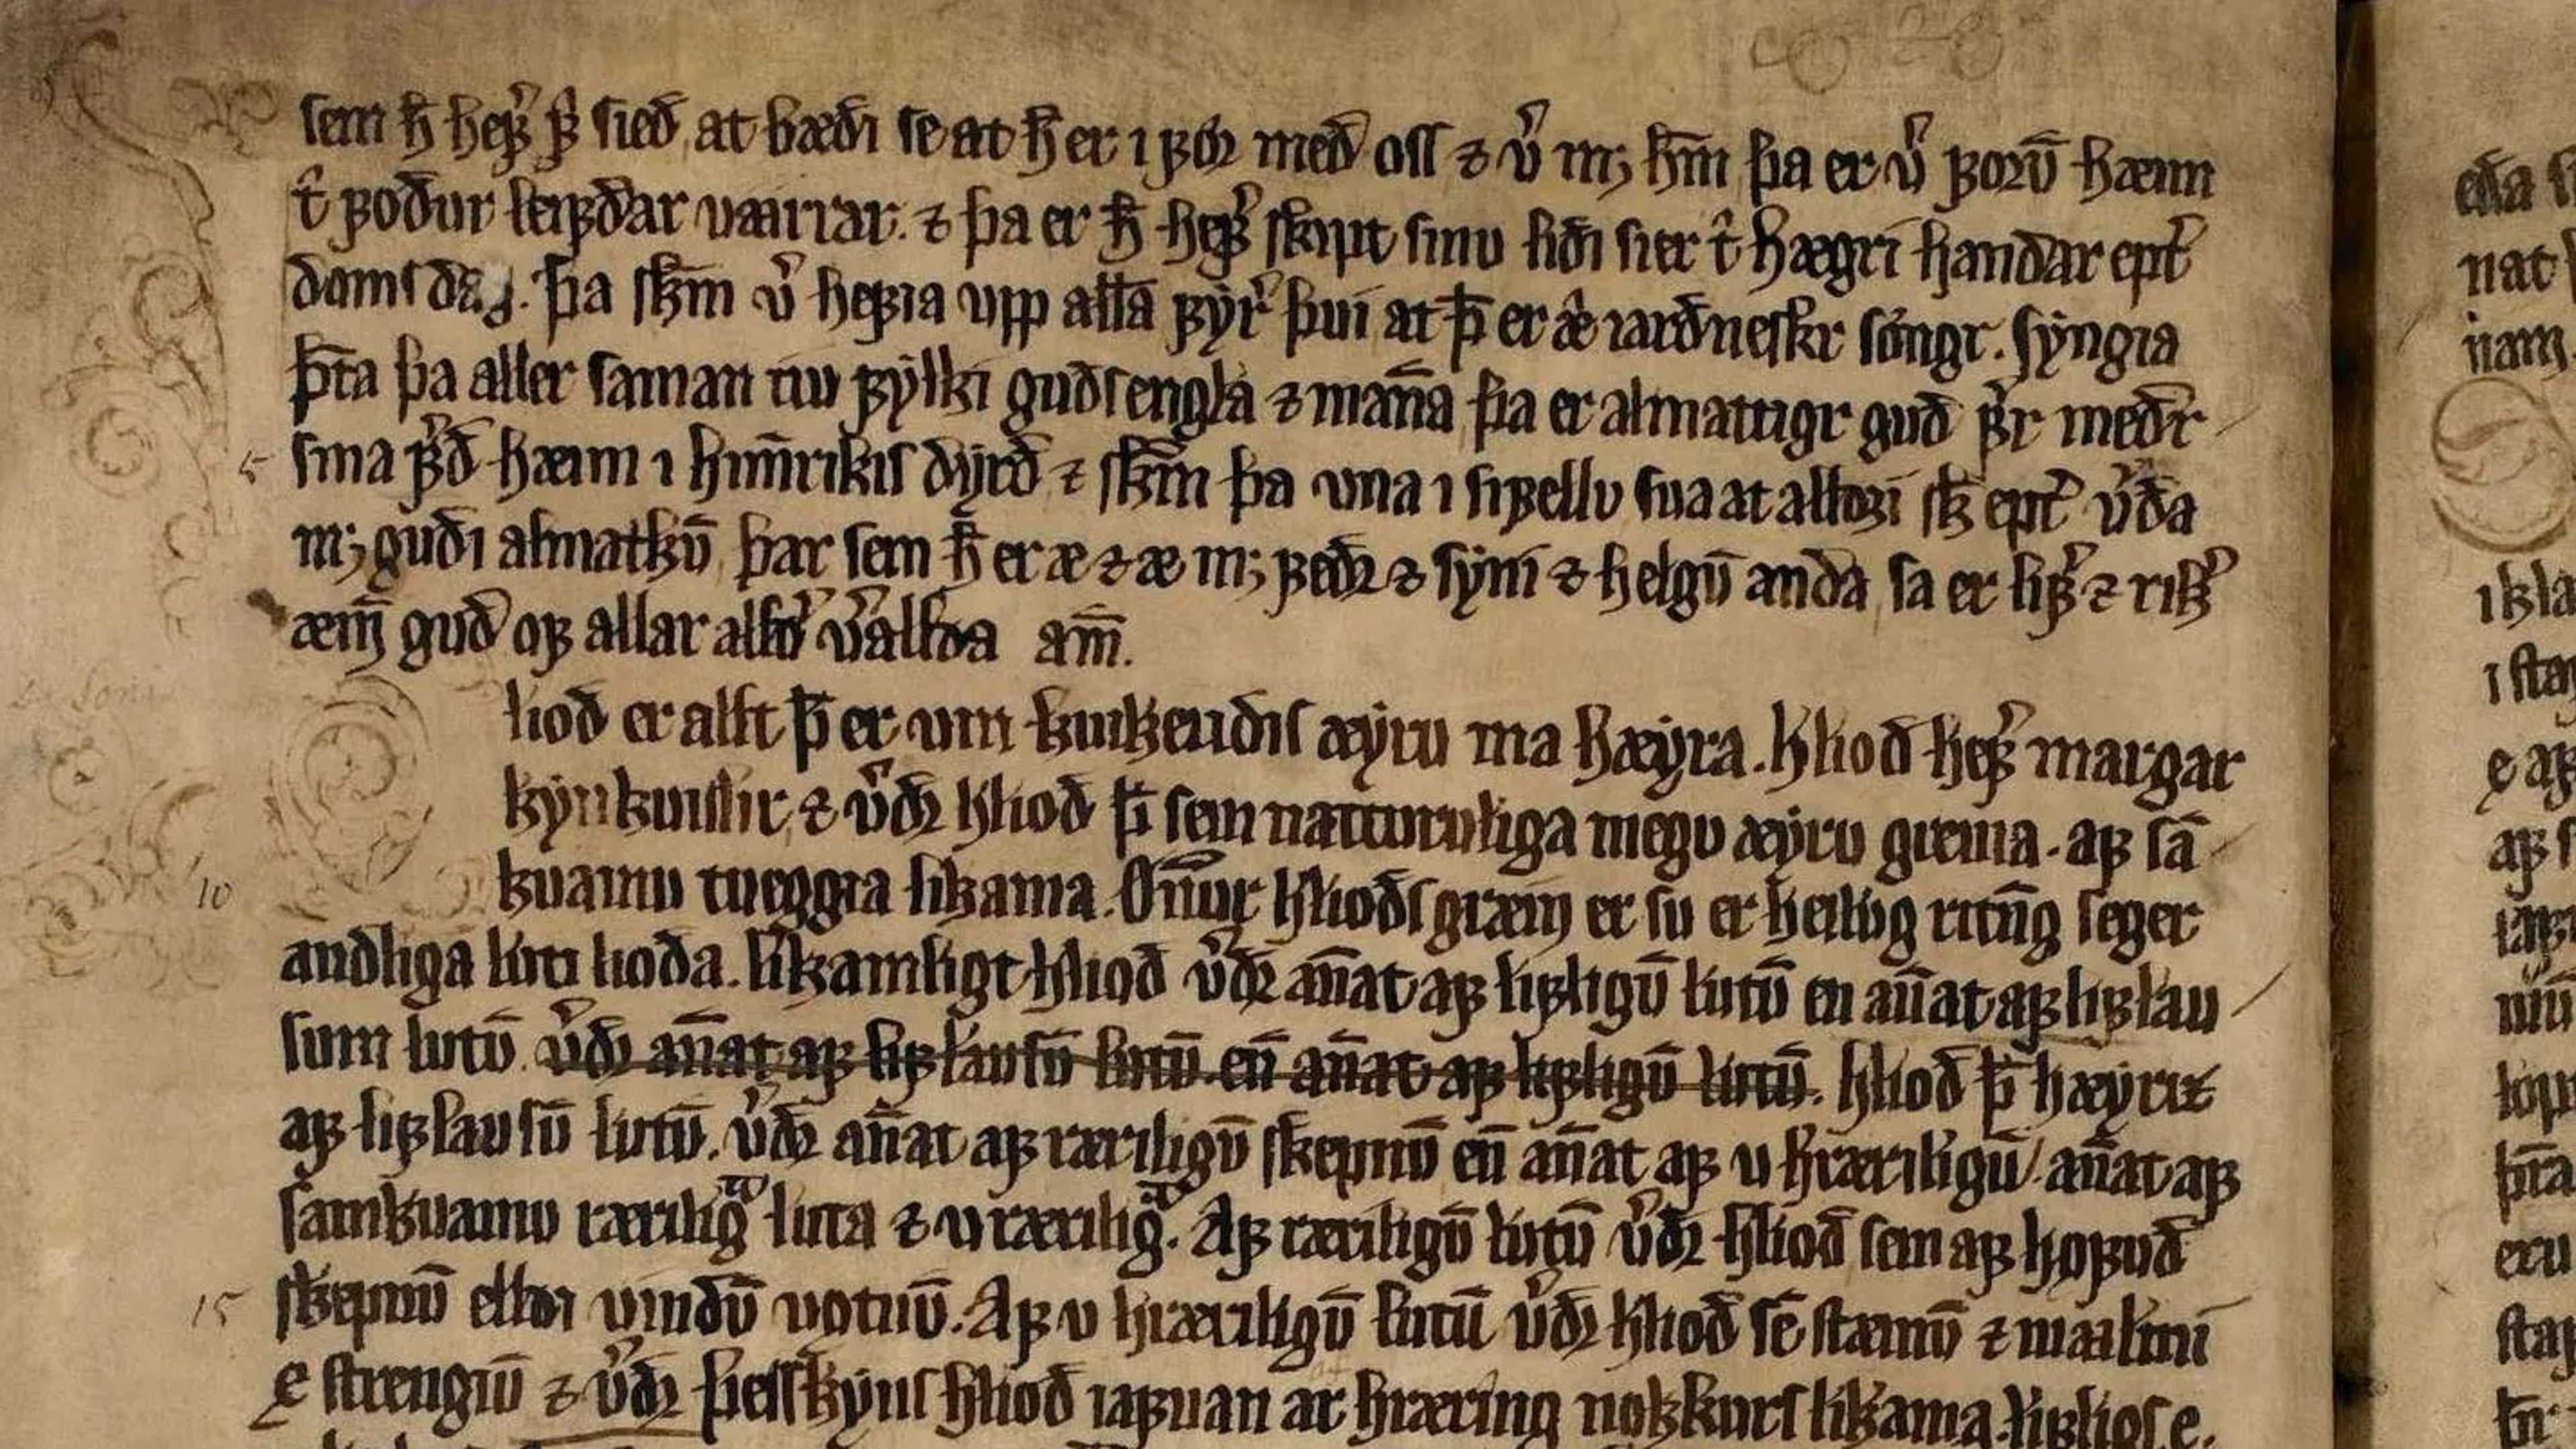 sem ħ hefꝛ̉ ꝼ̉ sied at bædi se at ħ er i ꝼỏꝛ med oss ⁊ v̉ mꝫ hm̄ þa er v̉ ꝼoꝛū hæim
t̉ ꝼodur leifdar vaarrar. ⁊ þa er ħ hefꝛ̉ skipt sinu lidi sier t̉ hægri handar ept̉
doms dag. þa skm̄ v̉ hefia vpp alla fyr̉ þui at þ̄ er æ iardneskr sóngr. syngia
þ̄ta þa aller saman tiu fylki guds engla ⁊ man̄a þa er almattigr gud f̉r med t̉
sina f̉d hæim i him̄rikis dyrd ⁊ skm̄ þa vna i sifellu sua at alldri sꝃ ept̉ v̉da
mꝫ gudi almatkū þar sem ħ er æ ⁊ æ mꝫ fedꝛ ⁊ syni ⁊ helgū anda sa er lifꝛ̉ ⁊ rikꝛ̉
æin̄ gud of allar alld̉ v̉allda am̄.
liod er allt þ̄ er um kuikendis æyru ma hæyra. hliod hefꝛ̉ margar
kynkuislir ⁊ v̉dꝛ hliod þ̄ sem natturuliga megu æyru græina. af sā
kuamu tueggia likama. Ȯnnur hliods græin er su er heilỏg ritn̄g seger
andliga luti lioda. likamligt hliod v̉dꝛ an̄at af lifligū lutū en an̄at af liflau
sum lutū v̉dꝛ an̄at af liflausū lutū en̄ an̄at af lifligū lutū. hliod þ̄ hæyriz
af liflausū lutū. v̉dꝛ an̄at af ræriligū skepnū en̄ an̄at af v hræriligū. an̄at af
samkuamu ræriligᷓ luta ⁊ v ræriligᷓ. Af ræriligū lutū v̉dꝛ hliod sem af hofud
skepnū elldi vindū vỏtnū. Af v hræriligū lutū v̉dꝛ hliod sē stæinū ⁊ maalmi
ę strengiū ⁊ v̉dꝛ þesskyns hliod iafnan ar hræring nokkurs likama. lifligs ę.